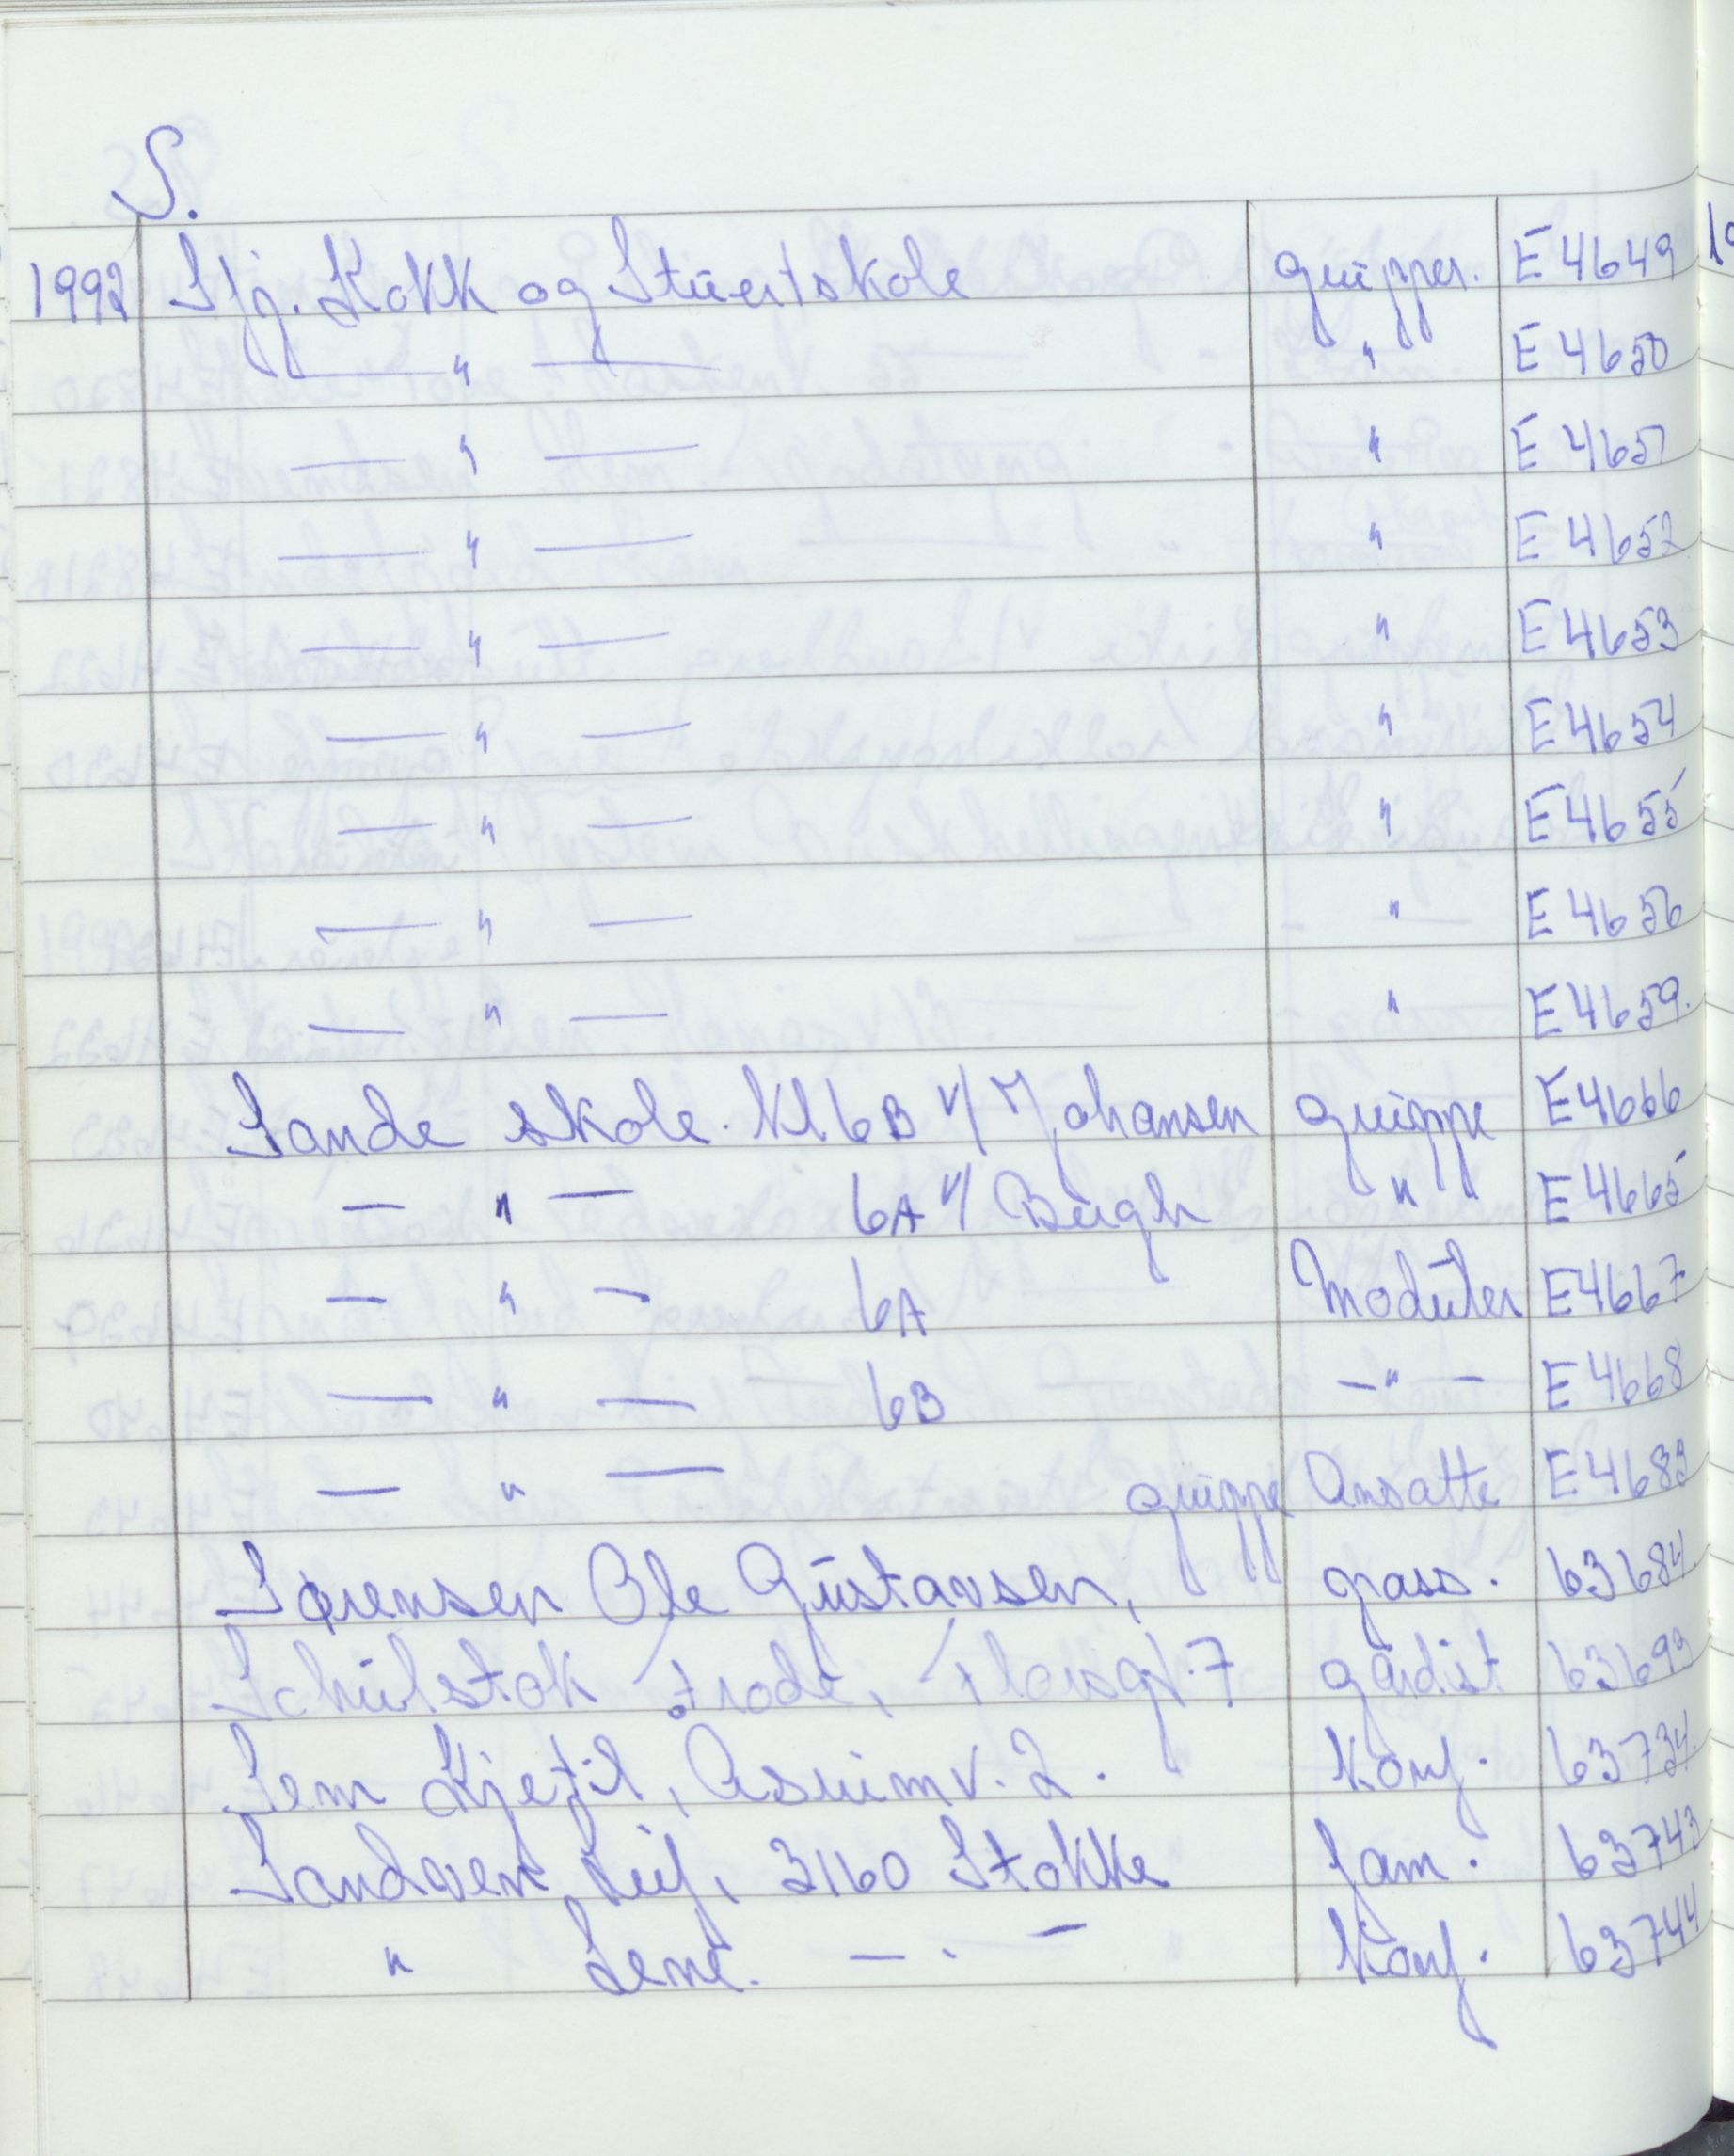 S.
1992 Sfj. Kokk og Stuertskole grupper. E 4649
— " — " E 4650
— " — " E 4651
— " — " E 4652
— " — " E 4653
— " — " E 4654
— " — " E 4655
— " — " E 4656
— " — " E 4659.
Sande skole. Kl 6B v/ Johansen gruppe E4666
— " — 6A v/ Bugh " E 4665
— " — 6A Moduler E4667
— " — 6B — " — E 4668
— " — gruppe Ansatte E4683
Sørensen Ole Gustavsen, pass. 63684
Schulstok Frode, 7 gardist 63693
Sem Kjetil, Asrumv. 2. Konf. 63734.
Sandven Leif, 3160 Stokke fam. 63743
" Lene. — . — Konf. 63744